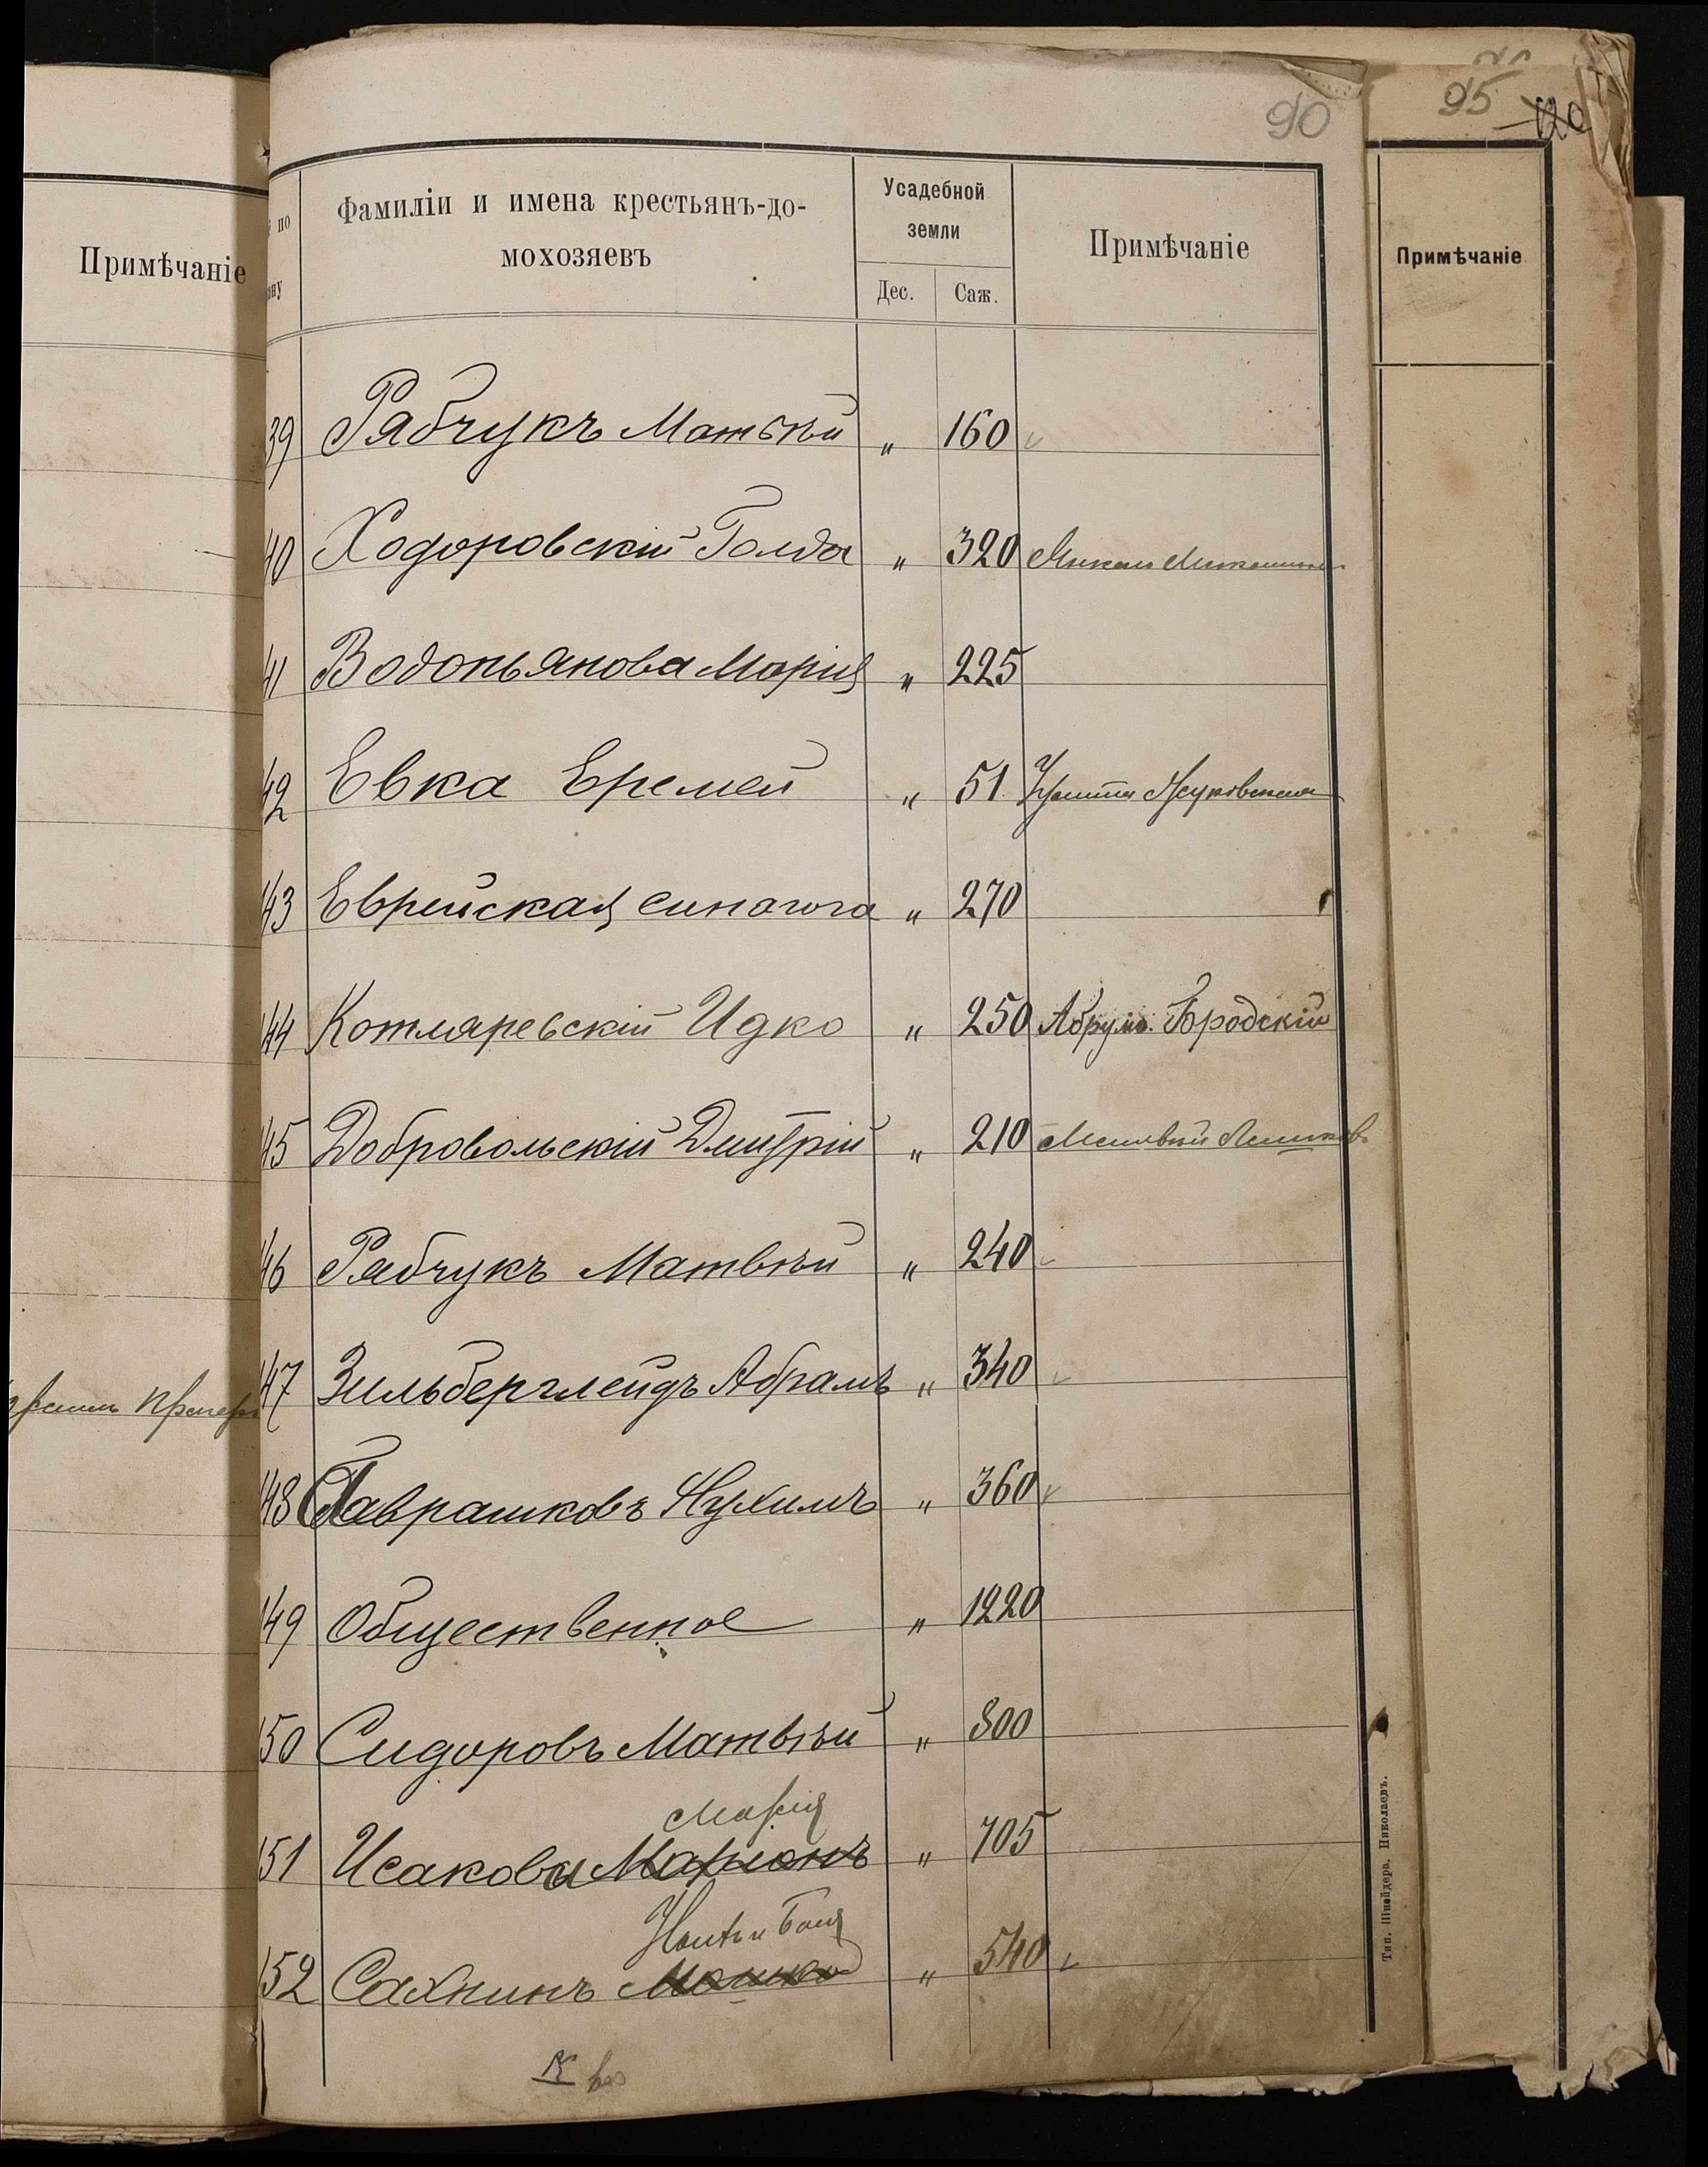 90
95
120
Примѣчаніе
№ по
Фамиліи и имена крестьянъ-до-
мохозяевъ
Усадебной
земли
Дес.
Саж.
Примѣчаніе
Примѣчаніе
39 Рябчукъ Матвѣй " 160
40 Ходоровскій Голда " 320
41 Водопьянова Марія " 225
42 Евка Еремей " 51
43 Еврейская синагога " 270
144 Котляревскій Идко " 250 Абрумъ Бродскій
145 Добровольскій Дмитрій " 210
146 Рябчукъ Матвѣй " 240
147 Зильберглейдъ Абрамъ " 340
148 Гаврашковъ Нухимъ " 360
149 Общественное " 1220
150 Сидоровъ Матвѣй " 800
Марія
151 Исакова Маріонъ " 705
152 Сахнинъ Мошко " 540
Тип. Шнейдера, Николаевъ.